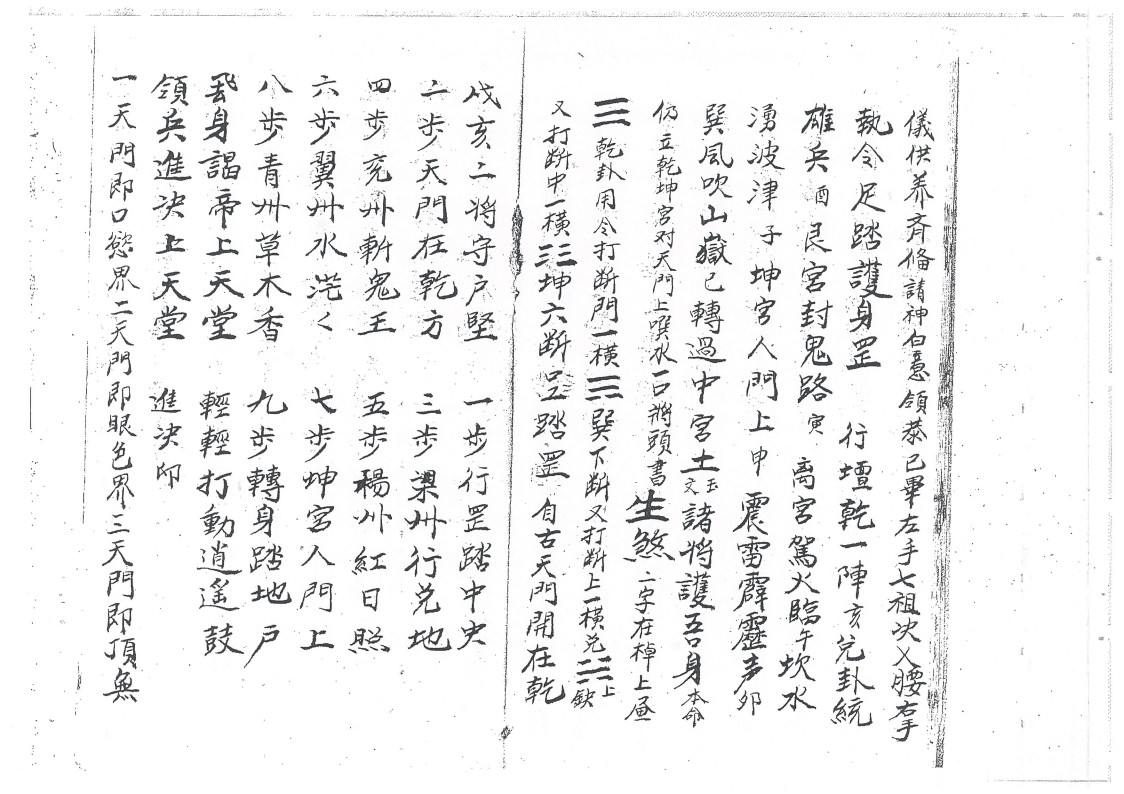 儀供养斉俻請神白意領恭已畢左手七祖决乂腰右手
執令足踏護身罡　行壇乾一陣亥兌卦統
雄兵酉艮宮封鬼路寅　离宮駕火臨午坎水
湧波津子坤宮人門上申　震雷霹靂声卯
巽風吹山嶽巳轉過中宮土玉文諸將護吾身本命
仍立乾坤宮对天門上噀水一口將頭書生煞二字在棹上昼
☰乾卦用令打断門一橫☴巽下断又打断上一橫兑☱上缺
又打断中一橫☷坤六断　踏罡　自古天門開在乾
戌亥二将守户堅　一步行罡踏中央
二步天門在乾方　三步梁州行兑地
四步兖州斬鬼王　五步楊州紅日照
六步翼州水滺く　七步坤宮人門上
八步青州草木香　九步轉身踏地户
飛身謁帝上天堂　輕輕打動逍遥鼓
領兵進决上天堂　進决卬
一天門即口慾界二天門即眼色界三天門即頂無